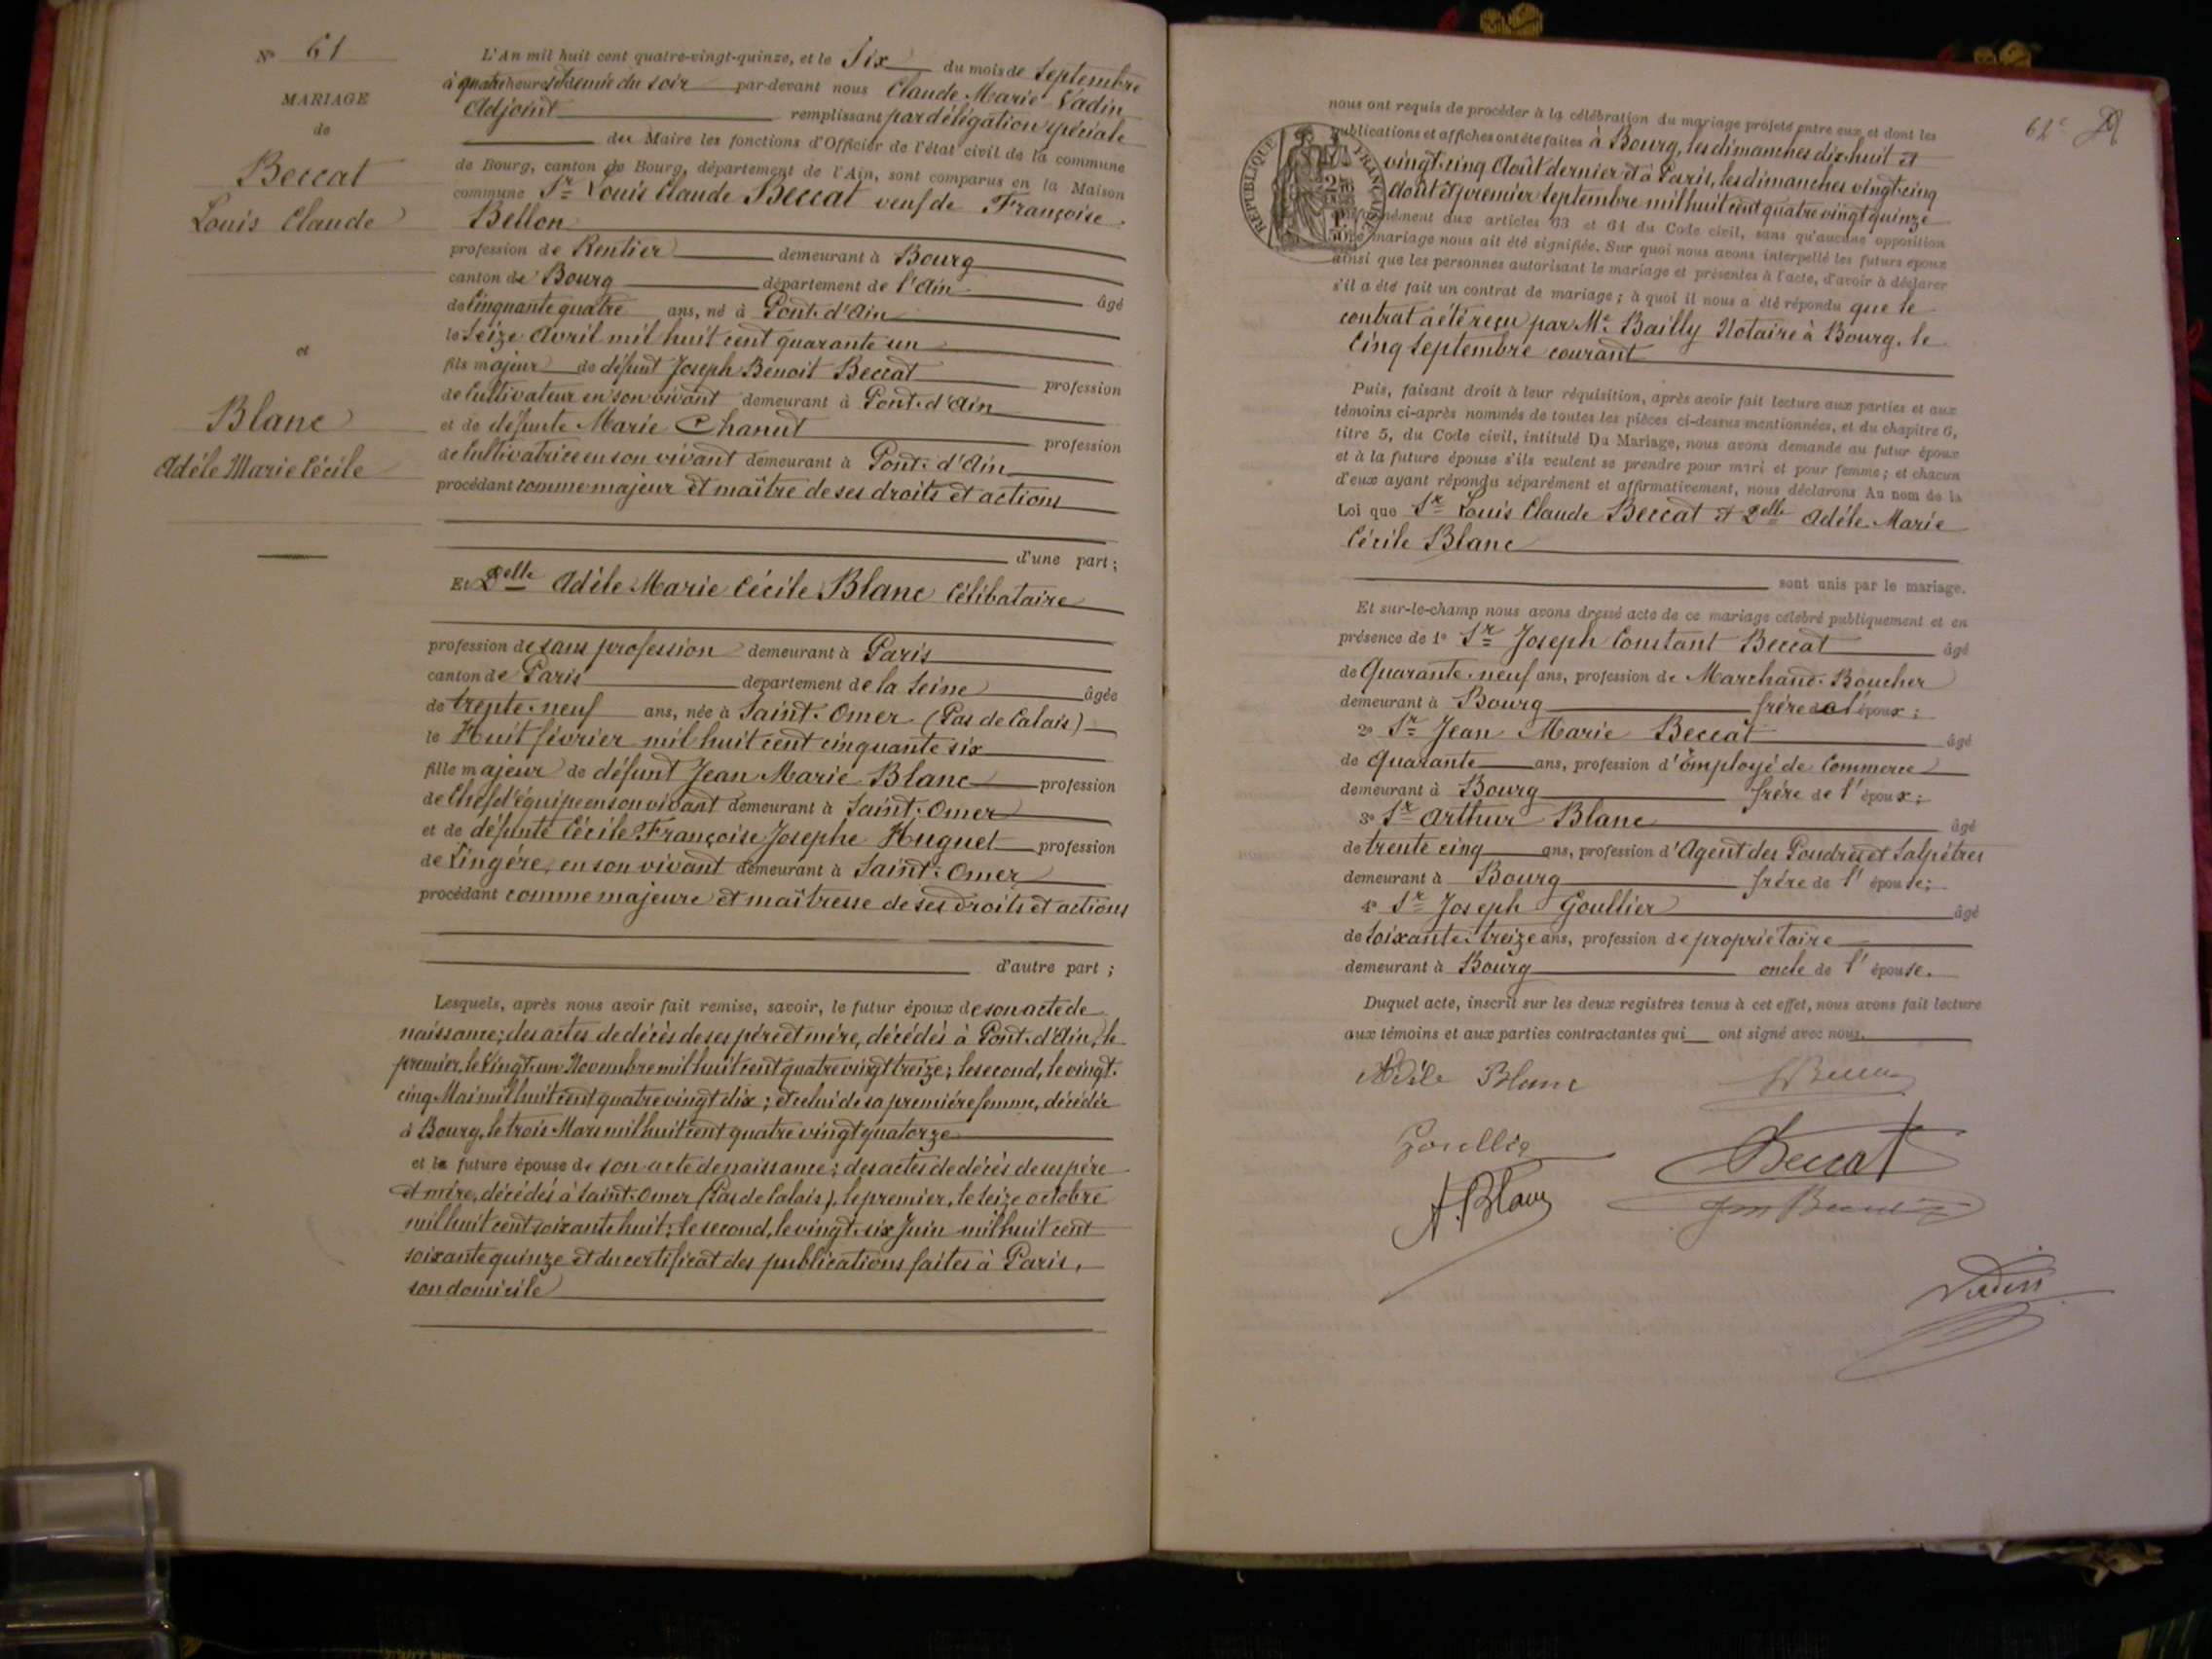 N° 61
MARIAGE
de
Beccat
Louis Claude
et
Blanc
Adèle Marie Cécile
L'An mil huit cent quatre-vingt-quinze, et le Six du mois de Septembre
à quatre heures et demie du soir par-devant nous Claude Marie Vadin
Adjoint remplissant par délégation spéciale
du Maire les fonctions d'Officier de l'état civil de la commune
de Bourg, canton de Bourg, département de l'Ain, sont comparus en la Maison
commune Sr Louis Claude Beccat veuf de Françoise
Bellon
profession de Rentier demeurant à Bourg
canton de Bourg département de l'Ain âgé
de Cinquante quatre ans, né à Pont-d'Ain
le Seize Avril mil huit cent quarante un
fils majeur de défunt Joseph Benoit Beccat profession
de Cultivateur en son vivant demeurant à Pont-d'Ain
et de défunte Marie Chanut profession
de Cultivatrice en son vivant demeurant à Pont-d'Ain
procédant comme majeur et maître de ses droits et actions
d'une part ;
Et Delle Adèle Marie Cécile Blanc Célibataire
profession de sans profession demeurant à Paris
canton de Paris département de la Seine âgée
de trente-neuf ans, née à Saint-Omer (Pas de Calais)
le Huit février mil huit cent cinquante six
fille majeur de défunt Jean Marie Blanc profession
de Chef d'équipe en son vivant demeurant à Saint-Omer
et de défunte Cécile Françoise Josephe Huguet profession
de Lingère, en son vivant demeurant à Saint-Omer
procédant comme majeure et maîtresse de ses droits et actions
d'autre part ;
Lesquels, après nous avoir fait remise, savoir, le futur époux de son acte de
naissance ; des actes de décès de ses père et mère, décédés à Pont-d'Ain, le
premier, le Vingt-un Novembre mil huit cent quatre vingt treize ; le second, le vingt-
cinq Mai mil huit cent quatre vingt dix ; et celui de sa première femme, décédée
à Bourg, le trois Mars mil huit cent quatre vingt quatorze
et la future épouse de son acte de naissance ; des actes de décès de ses père
et mère, décédés à Saint-Omer (Pas de Calais), le premier, le Seize octobre
mil huit cent soixante huit ; le second, le vingt-six Juin mil huit cent
soixante quinze et du certificat des publications faites à Paris,
son domicile
62e
nous ont requis de procéder à la célébration du mariage projeté entre eux et dont les
publications et affiches ont été faites à Bourg, les dimanches dix-huit et
vingt-cinq Août dernier et à Paris, les dimanches vingt-cinq
Août et premier Septembre mil huit cent quatre vingt quinze
RÉPUBLIQUE FRANÇAISE
aux articles 63 et 64 du Code civil, sans qu'aucune opposition
mariage nous ait été signifiée. Sur quoi nous avons interpellé les futurs époux
ainsi que les personnes autorisant le mariage et présentes à l'acte, d'avoir à déclarer
s'il a été fait un contrat de mariage ; à quoi il nous a été répondu que le
contrat a été reçu par Me Bailly Notaire à Bourg, le
Cinq Septembre courant
Puis, faisant droit à leur réquisition, après avoir fait lecture aux parties et aux
témoins ci-après nommés de toutes les pièces ci-dessus mentionnées, et du chapitre 6,
titre 5, du Code civil, intitulé Du Mariage, nous avons demandé au futur époux
et à la future épouse s'ils veulent se prendre pour mari et pour femme ; et chacun
d'eux ayant répondu séparément et affirmativement, nous déclarons Au nom de la
Loi que Sr Louis Claude Beccat et Delle Adèle Marie
Cécile Blanc
sont unis par le mariage.
Et sur-le-champ nous avons dressé acte de ce mariage célébré publiquement et en
présence de 1° Sr Joseph Constant Beccat âgé
de Quarante-neuf ans, profession de Marchand-Boucher
demeurant à Bourg frère de l'époux ;
2° Sr Jean Marie Beccat âgé
de Quarante ans, profession d'Employé de Commerce
demeurant à Bourg frère de l'époux ;
3° Sr Arthur Blanc âgé
de trente cinq ans, profession d'Agent des Poudres et Salpêtres
demeurant à Bourg frère de l'épouse ;
4° Sr Joseph Goullier âgé
de Soixante-treize ans, profession de propriétaire
demeurant à Bourg oncle de l'épouse.
Duquel acte, inscrit sur les deux registres tenus à cet effet, nous avons fait lecture
aux témoins et aux parties contractantes qui ont signé avec nous.
Adèle Blanc
Goullier
Beccat
A. Blanc
Vadin